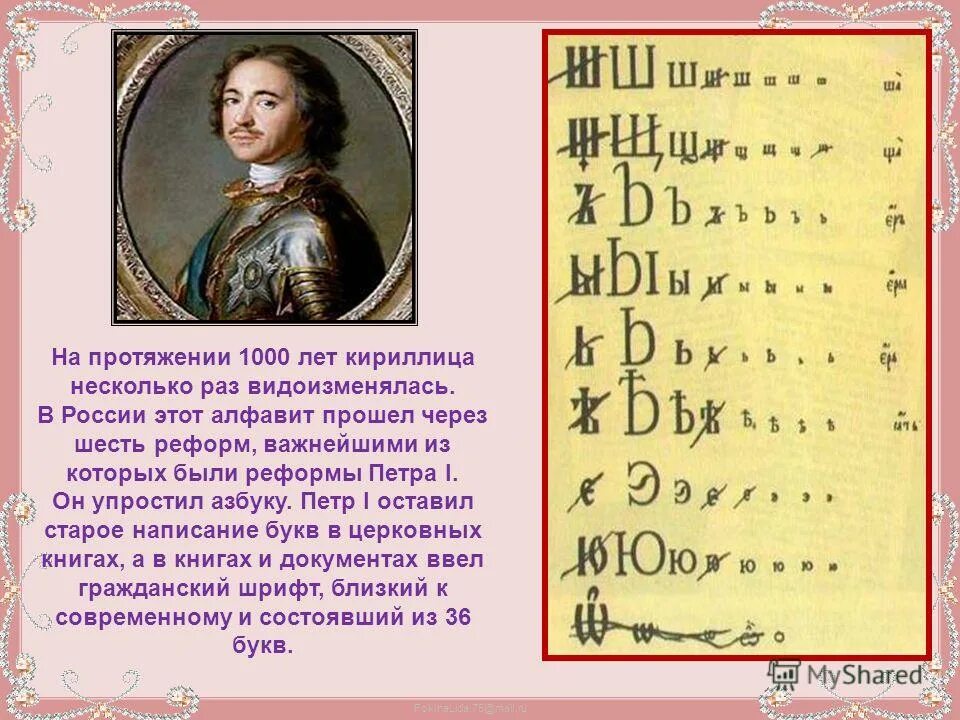 На протяжении 1000 лет кириллица
несколько раз видоизменялась.
В России этот алфавит прошел через
шесть реформ, важнейшими из
которых были реформы Петра I.
Он упростил азбуку. Петр I оставил
старое написание букв в церковных
книгах, а в книгах и документах ввел
гражданский шрифт, близкий к
современному и состоявший из 36
букв.
Ш Ш Ш ш ш ш ш ш ша̀
Щ Щ щ щ щ щ щ щ ща̀
Ъ Ъ ъ ъ ъ ъ ъ ъ
Ы Ы ы ы ы ы ы ы
Ь Ь ь ь ь ь ь ь
Ѣ Ѣ ѣ ѣ ѣ ѣ ѣ
є Э э є є э э э
Ю Ю ю ю ю ю ю ю
Ѿ ѡ о
MyShared